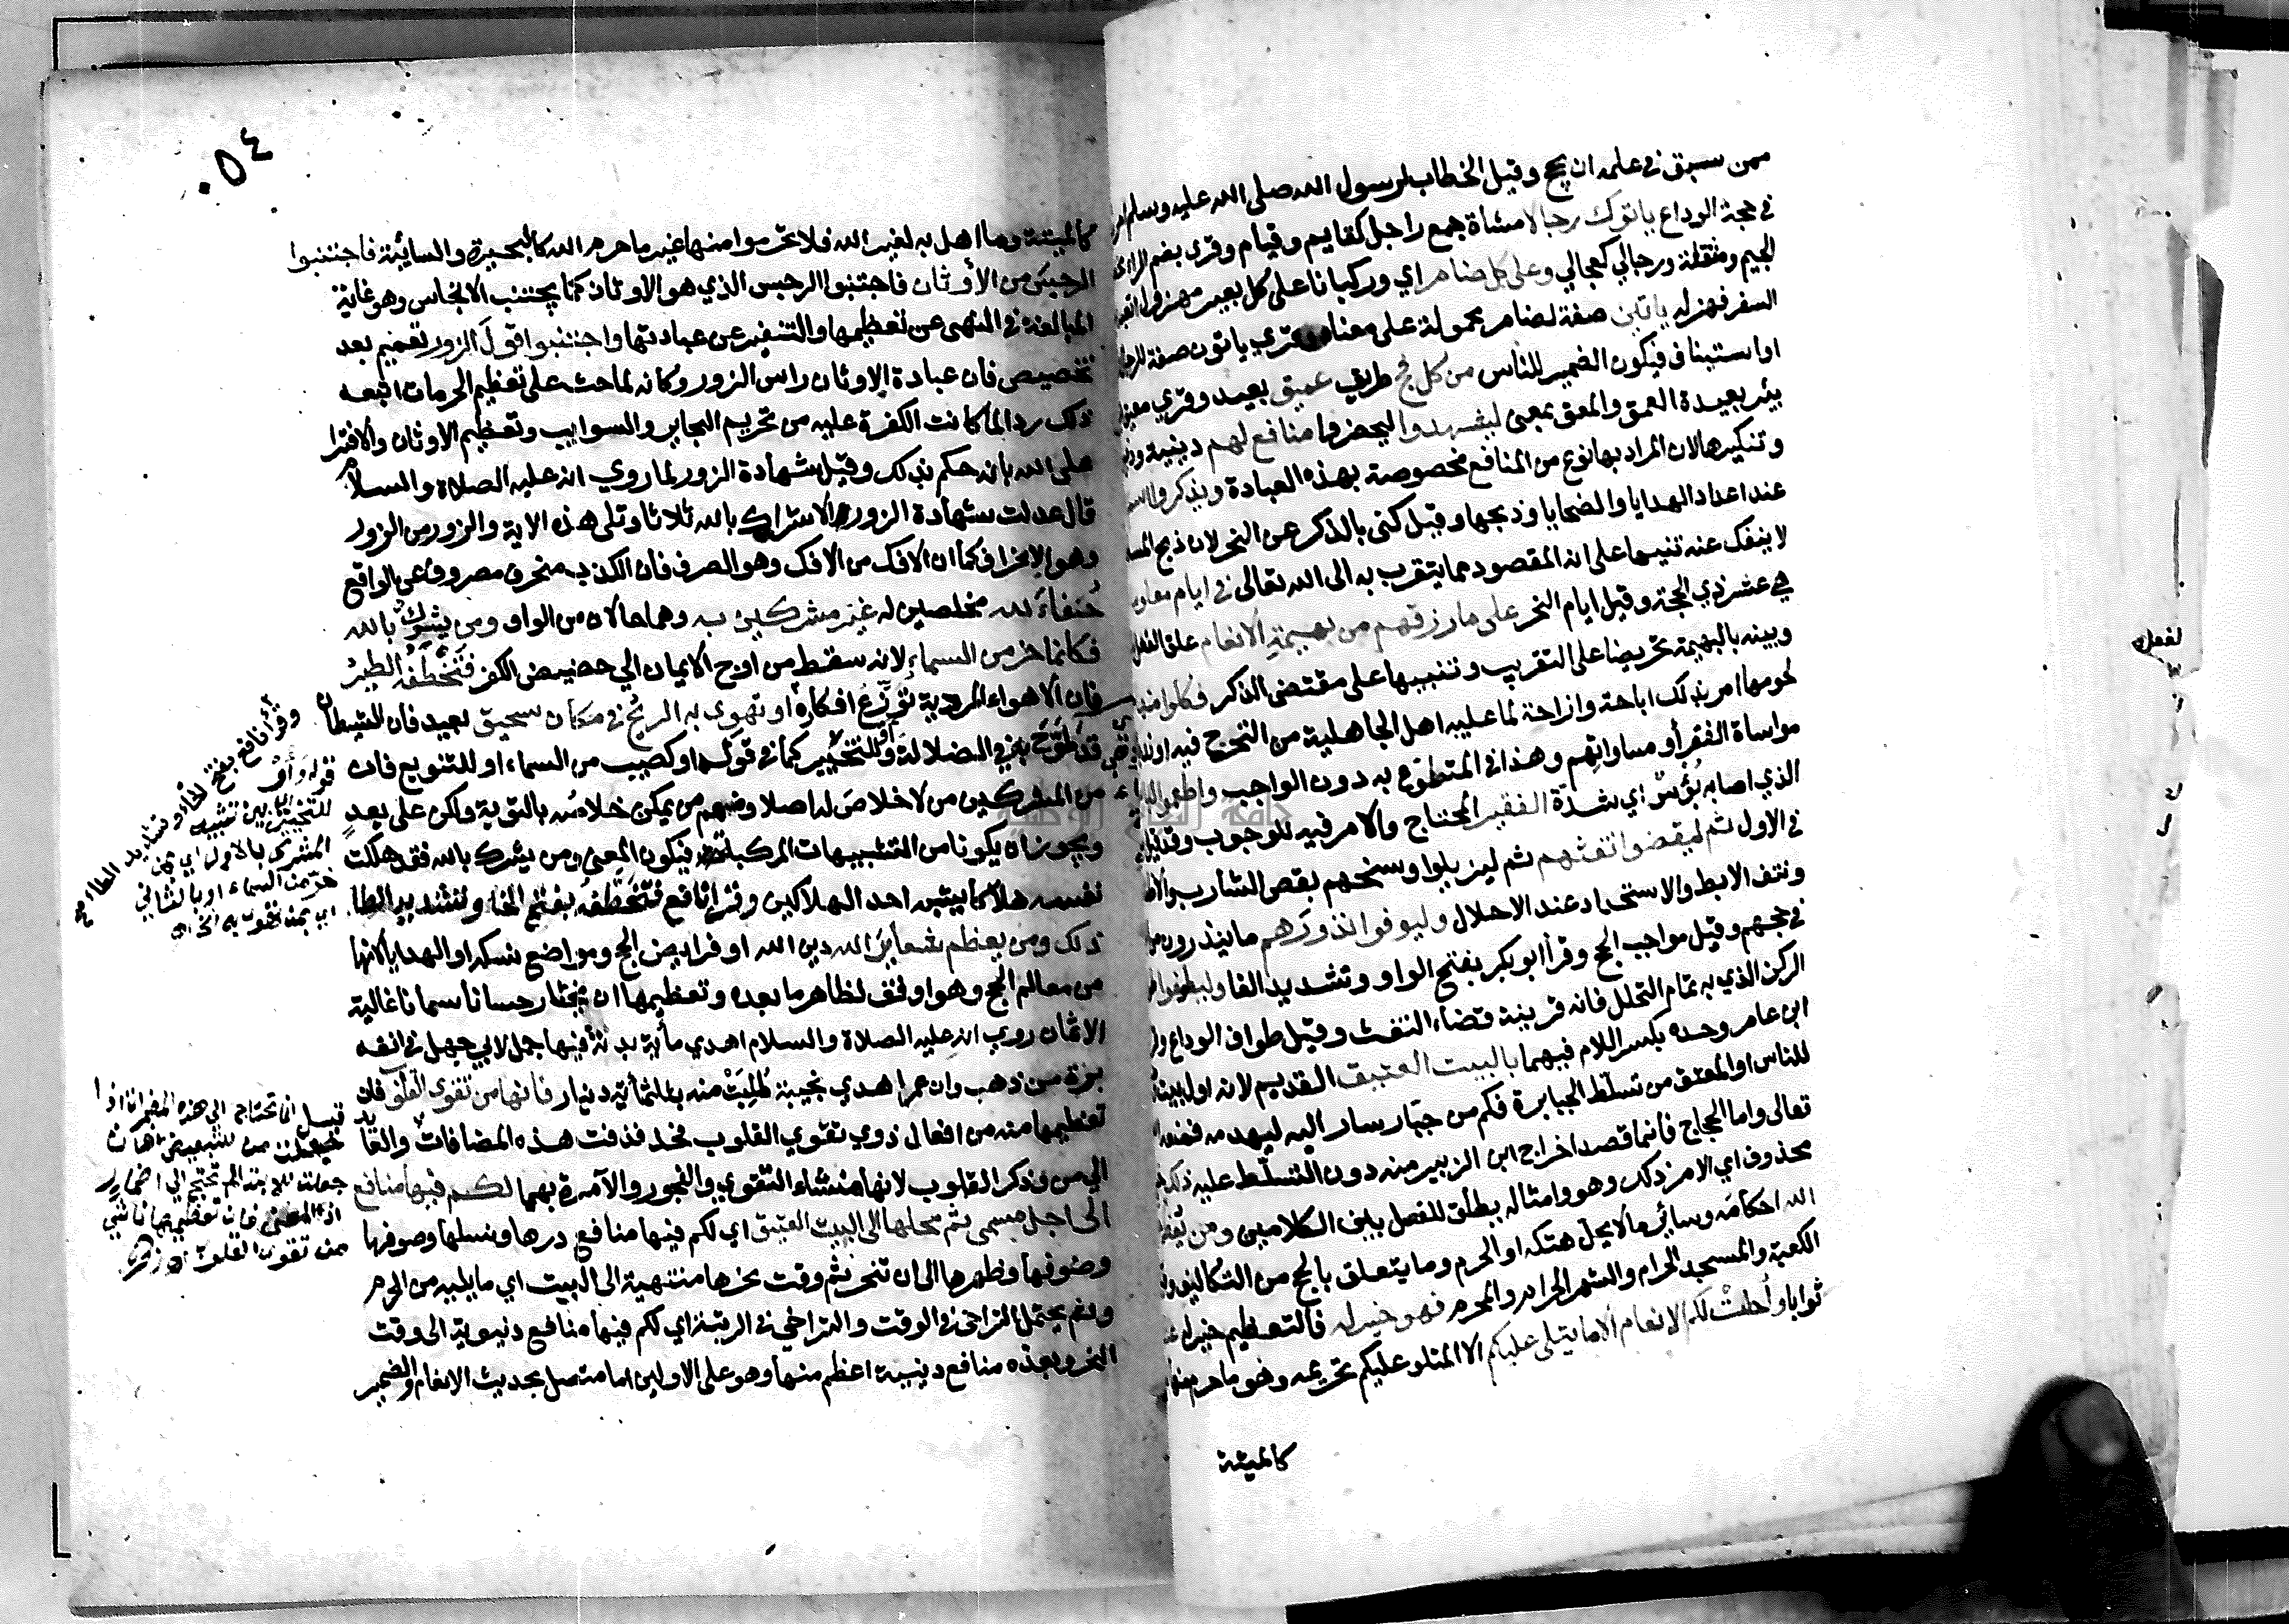 ممن سبق في علمه ان يحج وقيل الخطاب لرسول الله صلى الله عليه وسلم
في حجة الوداع ياتوك رجالا مشاة جمع راجل كقايم وقيام وقري بضم الراء
الجيم ومثقلة ورجالي كعجالي وعلى كل ضامر اي وركبانا على كل بعير مهزول
السفر فهزله ياتين صفة لضامر محمولة على معناه وقري ياتون صفة للرجال
او استيناف فيكون الضمير للناس من كل فج طريق عميق بعيد وقري معيق
بئر بعيدة العمق والمعق بمعنى ليشهدوا ليحضروا منافع لهم دينية
وتنكيرها لان المراد بها نوع من المنافع مخصوصة بهذه العبادة ويذكروا
عند اعداد الهدايا والضحايا وذبحها وقيل كنى بالذكر عن النحر لان ذبح
لا ينفك عنه تنبيها على انه المقصود مما يتقرب به الى الله تعالى في ايام
هي عشر ذي الحجة وقيل ايام النحر على ما رزقهم من بهيمة الانعام علق الفعل
وبينه بالبهيمة تحريضا على التقريب وتنبيها على مقتضى الذكر فكلوا
لحومها امر بذلك اباحة وازاحة لما عليه اهل الجاهلية من التحرج فيه
مواساة الفقرا ومساواتهم وهذا في المتطوع به دون الواجب واطعموا
الذي اصابه بؤس اي شدة الفقير المحتاج والامر فيه للوجوب وقد قيل
في الاول ثم ليقضوا تفثهم ثم ليزيلوا وسخهم بقص الشارب
ونتف الابط والاستحداد عند الاحلال وليوفوا نذورهم ما ينذرون
في حجهم وقيل مواجب الحج وقرأ ابو بكر بفتح الواو وتشديد الفا وليطوفوا
الركن الذي به تمام التحلل فانه قرينة قضاء التفث وقيل طواف الوداع
ابن عامر وحده بكسر اللام فيهما بالبيت العتيق القديم لانه اول بيت
للناس او المعتق من تسلط الجبابرة فكم من جبار سار اليه ليهدمه
تعالى واما الحجاج فانما قصد اخراج ابن الزبير منه دون التسلط عليه ذلك
محذوف اي الامر ذلك وهو وامثاله يطلق للفصل بين الكلامين ومن
الله احكامه وسائر ما لا يحل هتكه او الحرم وما يتعلق بالحج من التكاليف
الكعبة والمسجد الحرام والشهر الحرام والمحرم فهو خير له فالتعظيم خير له
ثوابا وأحلت لكم الانعام الا ما يتلى عليكم الا المتلو عليكم تحريمه وهو ما حرم منها
كالميتة
٠٥٤
كالميتة وما اهل به لغير الله فلا تحرموا منها غير ما حرم الله كالبحيرة والسائبة فاجتنبوا
الرجس من الأوثان فاجتنبوا الرجس الذي هو الاوثان كما يجتنب الانجاس وهو غاية
المبالغة في النهى عن تعظيمها والتنفير عن عبادتها واجتنبوا قول الزور تعميم بعد
تخصيص فان عبادة الاوثان راس الزور وكانه لما حث على تعظيم الحرمات اتبعه
ذلك ردا لما كانت الكفرة عليه من تحريم البحاير والسوايب وتعظيم الاوثان والافترا
على الله بانه حكم بذلك وقيل شهادة الزور لما روي انه عليه الصلاة والسلام
قال عدلت شهادة الزور الاشراك بالله ثلاثا وتلى هذه الاية والزور من الزور
وهو الانحراف كما ان الافك من الافك وهو الصرف فان الكذب منحرف مصروف عن الواقع
حنفاء لله مخلصين له غير مشركين به وهما حالان من الواو ومن يشرك بالله
فكانما خر من السماء لانه سقط من اوج الايمان الي حضيض الكفر فتخطفه الطير
فان الاهواء المردية توزع افكاره او تهوي به الريح في مكان سحيق بعيد فان الشيطان
قد طوح به في الضلالة وأو للتخيير كما في قوله او كصيب من السماء او للتنويع فان
من المشركين من لا خلاص له اصلا ومنهم من يمكن خلاصه بالتوبة ولكن على بعد
ويجوز ان يكونا من التشبيهات المركبة فيكون المعنى ومن يشرك بالله فقد هلكت
نفسه هلاكا يشبه احد الهلاكين وقرأ نافع فتخطفه بفتح الخا وتشديد الطا
ذلك ومن يعظم شعائر الله دين الله او فرايض الحج ومواضع نسكه او الهدايا لانها
من معالم الحج وهو اوفق لظاهر ما بعده وتعظيمها ان يختار حسانا سمانا غالية
الاثمان روي انه عليه الصلاة والسلام اهدي مأية بدنة فيها جمل لابي جهل في انفه
برة من ذهب وان عمر اهدي نجيبة طلبت منه بثلثمأية دينار فانها من تقوى القلوب فان
تعظيمها منه من افعال ذوي تقوي القلوب فحذفت هذه المضافات والعايد
الي من وذكر القلوب لانها منشاء التقوي والفجور والآمرة بهما لكم فيها منافع
الى اجل مسمى ثم محلها الى البيت العتيق اي لكم فيها منافع درها ونسلها وصوفها
وظهرها الى ان تنحر ثم وقت نحرها منتهية الى البيت اي ما يليه من الحرم
وثم يحتمل التراخي في الوقت والتراخي في الرتبة اي لكم فيها منافع دنيوية الى وقت
النحر وبعده منافع دينية اعظم منها وهو على الاولين اما متصل بحديث الانعام والضمير
وقرأ نافع بفتح الخاء وتشديد الطاء
قوله وأو
للتخيير بين تشبيه
المشرك بالاول اي بمن
خر من السماء او بالثاني
اي بمن تهوي به الخ
قيل انما تحتاج الى هذه المضمرات اذا
جعلت من للتبعيض
جعلت للابتدا لم تحتج الى اضمار
اذ المعنى فان تعظيمها ناشي
من تقوى القلوب
لفعل